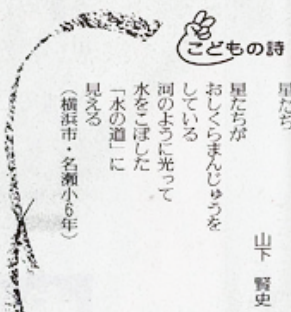 こどもの詩
星たち
山下 賢史
星たちが
おしくらまんじゅうを
している
河のように光って
水をこぼした
「水の道」に
見える
(横浜市・名瀬小6年)